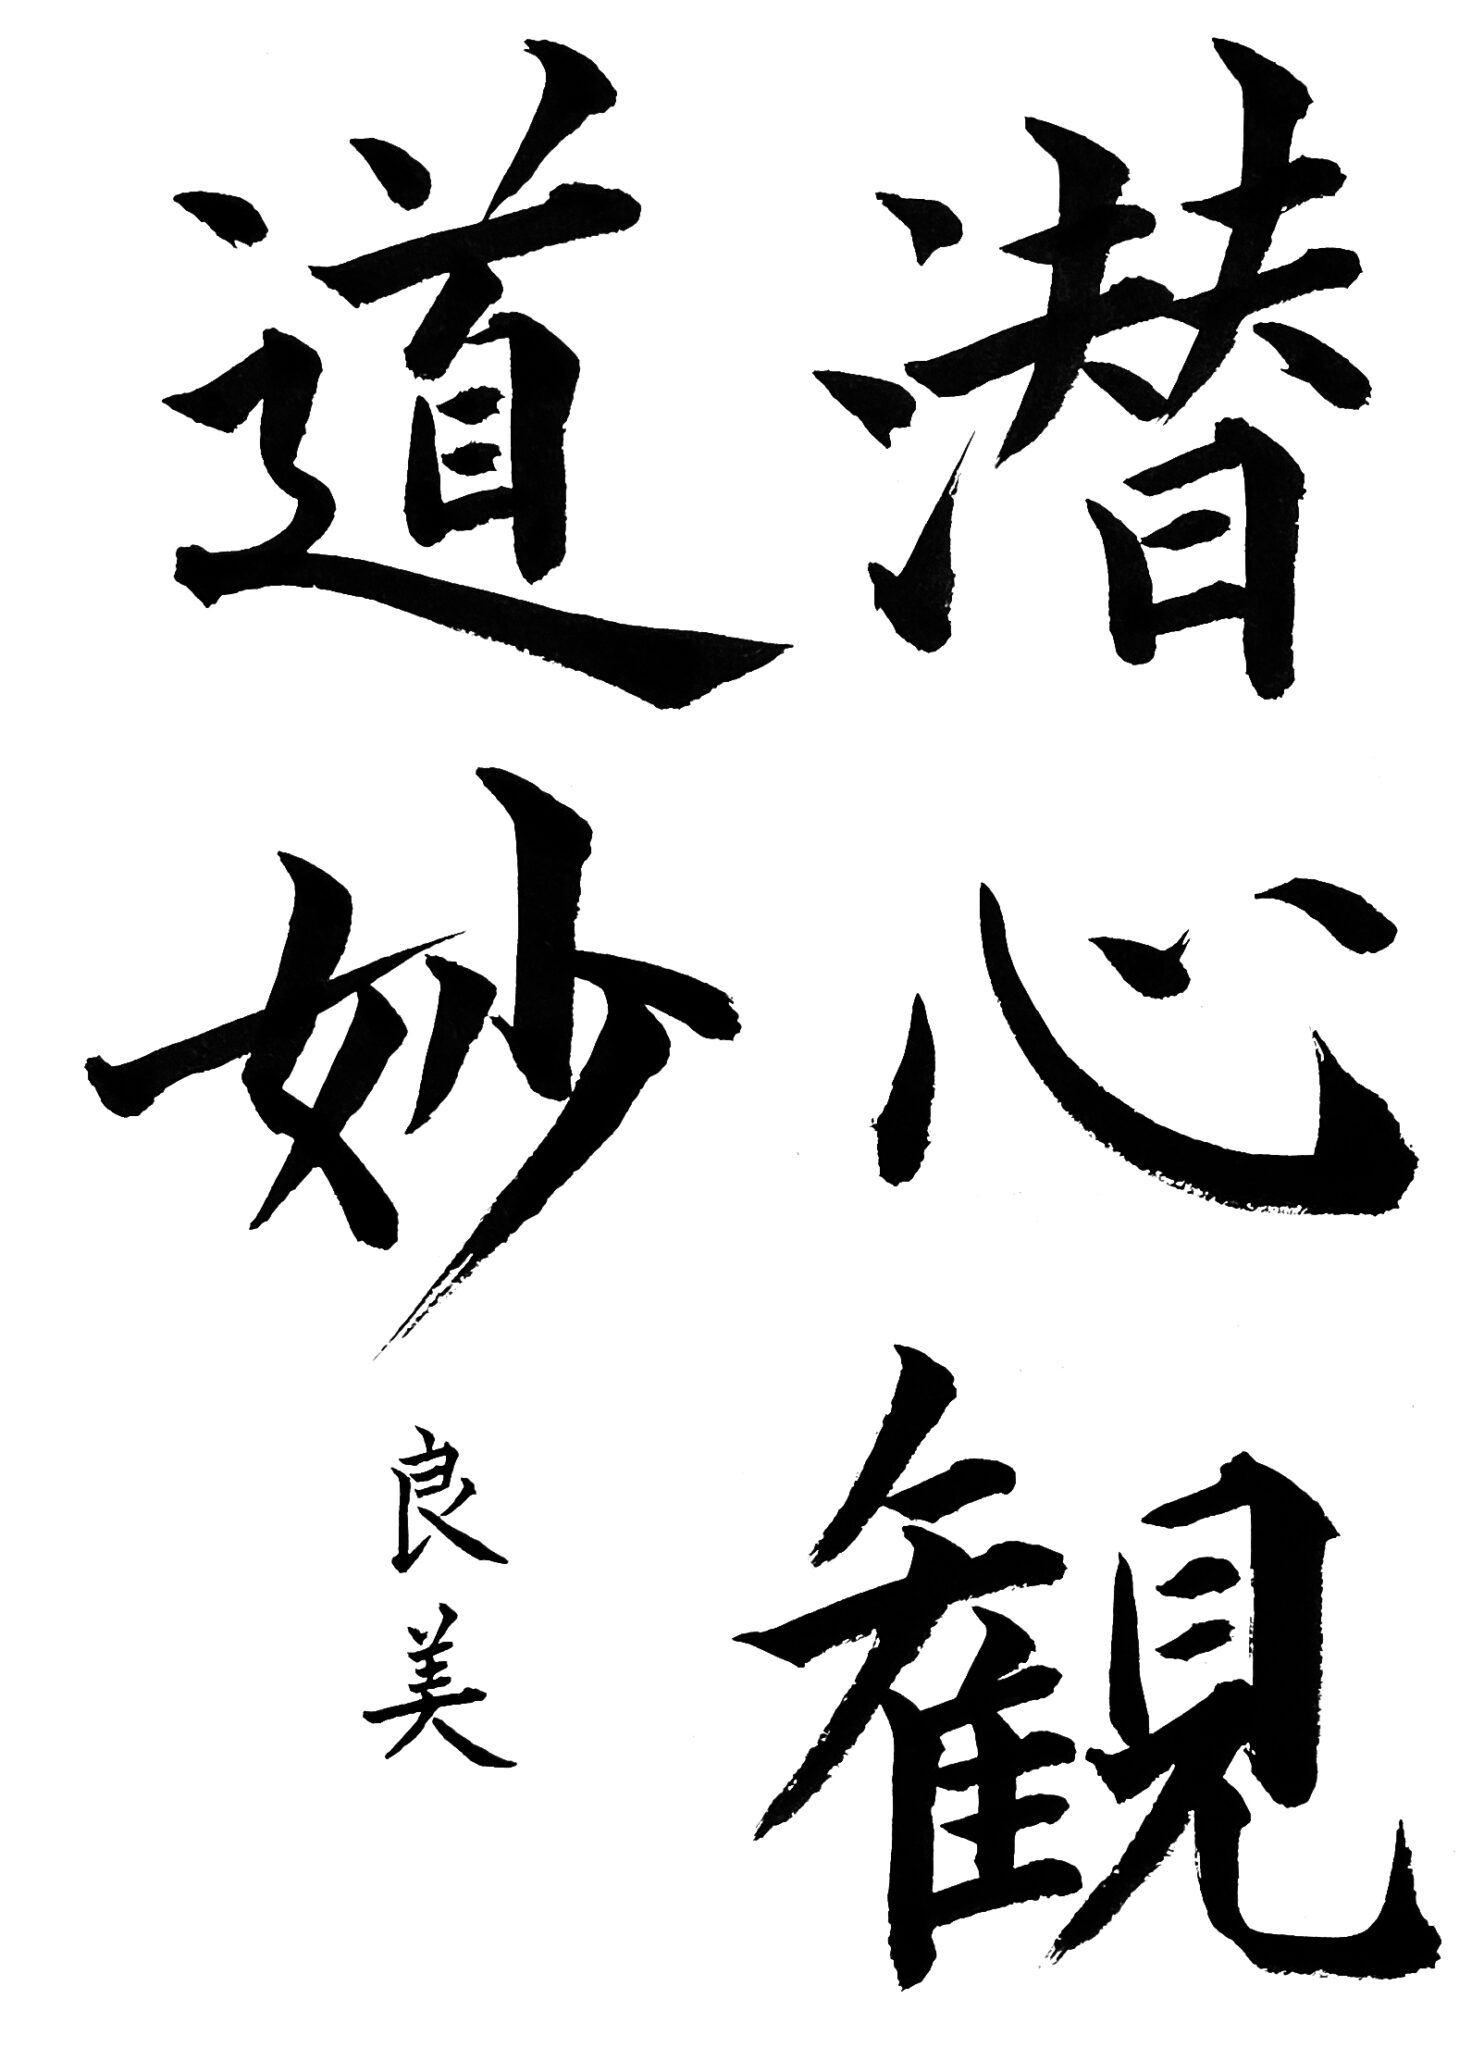 潜心観
道妙
良美